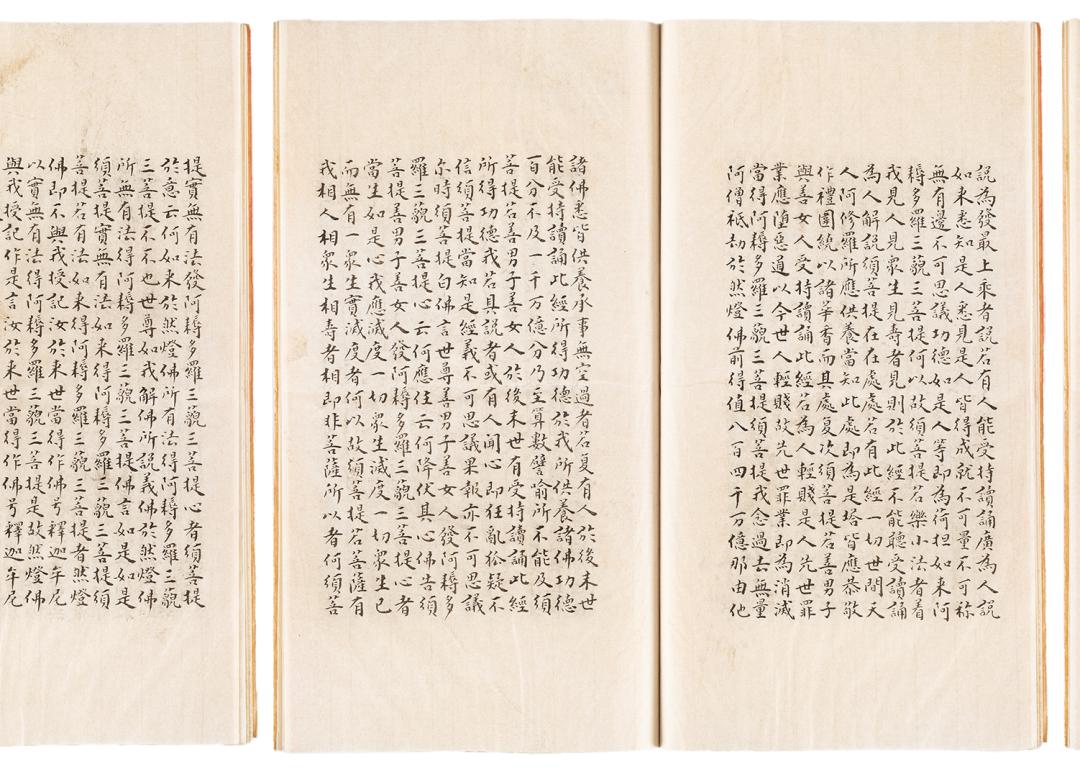 說為發最上乘者說若有人能受持讀誦廣為人說
如来悉知是人悉見是人皆得成就不可量不可称
無有邊不可思議功德如是人等即為荷担如来阿
耨多羅三藐三菩提何以故須菩提若樂小法者着
我見人見衆生見壽者見則於此經不能聽受讀誦
為人解說須菩提在在處處若有此經一切世間天
人阿修羅所應供養當知此處即為是塔皆應恭敬
作禮圍繞以諸華香而具處复次須菩提若善男子
與善女人受持讀誦此經若為人輕賤是人先世罪
業應墮惡道以今世人輕賤故先世罪業即為消滅
當得阿耨多羅三藐三菩提須菩提我念過去無量
阿僧祇劫於然燈佛前得值八百四千万億那由他
諸佛悉皆供養承事無空過者若复有人於後末世
能受持讀誦此經所得功德於我所供養諸佛功德
百分不及一千万億分乃至算數譬喻所不能及須
菩提若善男子善女人於後末世有受持讀誦此經
所得功德我若具說者或有人聞心即狂亂狐疑不
信須菩提當知是經義不可思議果報亦不可思議
尒時須菩提白佛言世尊善男子善女人發阿耨多
羅三藐三菩提心云何應住云何降伏其心佛告須
菩提善男子善女人發阿耨多羅三藐三菩提心者
當生如是心我應滅度一切衆生滅度一切衆生已
而無有一衆生實滅度者何以故須菩提若菩薩有
我相人相衆生相壽者相即非菩薩所以者何須菩
提實無有法發阿耨多羅三藐三菩提心者須菩提
於意云何如来於然燈佛所有法得阿耨多羅三藐
三菩提不不也世尊如我解佛所說義佛於然燈佛
所無有法得阿耨多羅三藐三菩提佛言如是如是
須菩提實無有法如来得阿耨多羅三藐三菩提須
菩提若有法如来得阿耨多羅三藐三菩提者然燈
佛即不與我授記汝於来世當得作佛号釋迦牟尼
以實無有法得阿耨多羅三藐三菩提是故然燈佛
與我授記作是言汝於来世當得作佛号釋迦牟尼